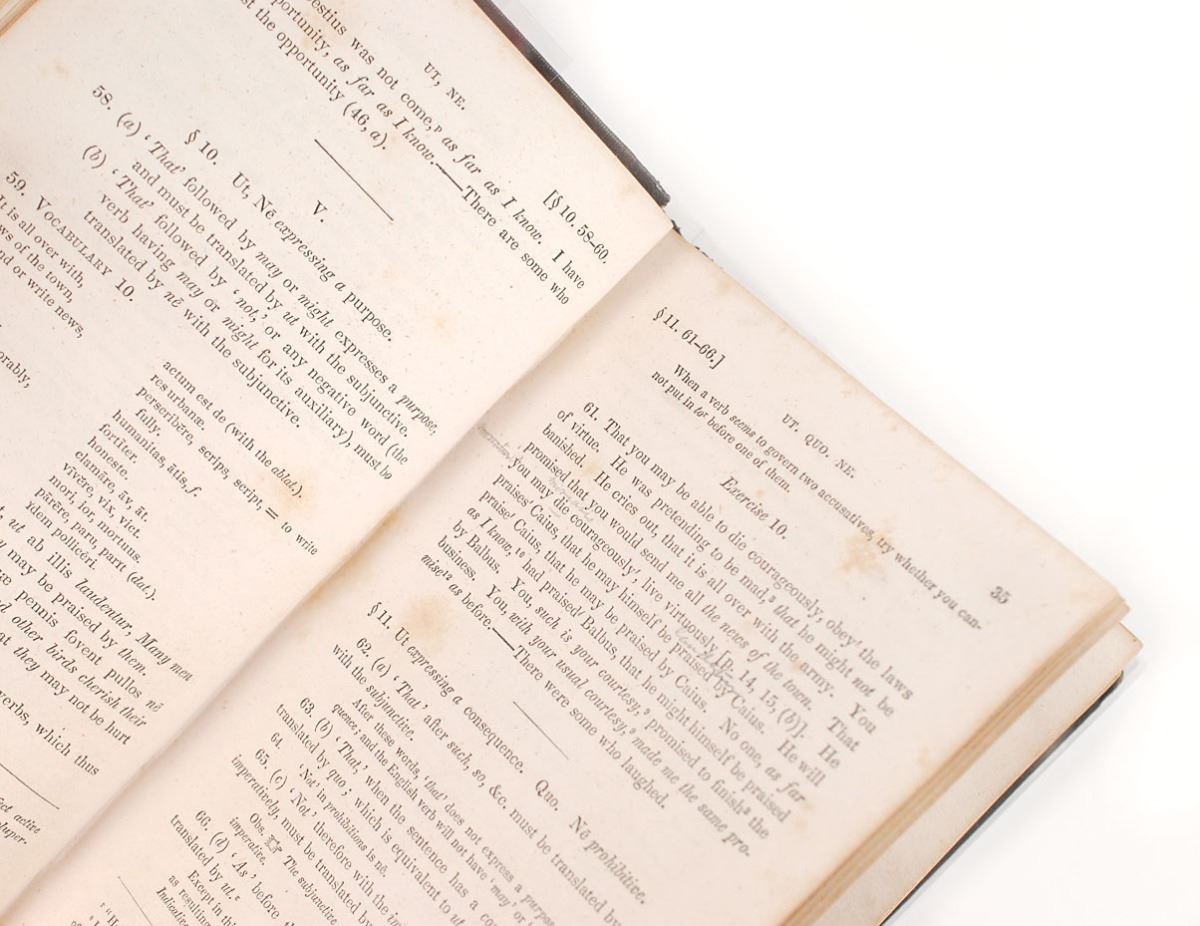 UT, NE.
[§ 10. 58–60.
estius was not come,ᵖ as far as I know. I have
portunity, as far as I know.—There are some who
st the opportunity (46, a).
V.
§ 10. Ut, Nē expressing a purpose.
58. (a) ‘That’ followed by may or might expresses a purpose,
and must be translated by ut with the subjunctive.
(b) ‘That’ followed by ‘not,’ or any negative word (the
verb having may or might for its auxiliary), must be
translated by nē with the subjunctive.
59. VOCABULARY 10.
It is all over with, actum est de (with the ablat.).
ws of the town, res urbanæ.
nd or write news, perscribĕre, scrips, script, = to write
fully.
humanitas, ātis, f.
fortĭter.
orably, honeste.
clamāre, āv, āt.
vivĕre, vix, vict.
mori, ior, mortuus.
pārēre, paru, parĭt (dat.).
pollĭcēri.
ut ab illis laudentur, Many men
may be praised by them.
pennis fovent pullos nē
other birds cherish their
at they may not be hurt
verbs, which thus
ect active
§ 11. 61–66.]
UT. QUO. NE.
35
When a verb seems to govern two accusatives, try whether you can-
not put in ‘to’ before one of them.
Exercise 10.
61. That you may be able to die courageously, obey! the laws
of virtue. He was pretending to be mad,ˢ that he might not be
banished. He cries out, that it is all over with the army. You
promised that you would send me all the news of the town. That
you may die courageously, live virtuously [p. 14, 15, (b)]. He
praises Caius, that he may himself be praised by Caius. He will
praise Caius, that he may be praised by Caius. No one, as far
as I know,¹⁰ had praised Balbus, that he might himself be praised
by Balbus. You, such is your courtesy,⁹ promised to finish² the
business. You, with your usual courtesy,⁹ made me the same pro-
mise¹² as before.—There were some who laughed.
§ 11. Ut expressing a consequence. Quo. Nē prohibitive.
62. (a) ‘That’ after such, so, &c. must be translated by
with the subjunctive.
After these words, ‘that’ does not express a purpose
quence; and the English verb will not have ‘may’ or
63. (b) ‘That,’ when the sentence has a co
translated by quo; which is equivalent to ut
64. ‘Not’ in prohibitions is nē.
65. (c) ‘Not’ therefore with the im
imperatively, must be translated by
Obs. ☞ The subjunctive
imperative.
66. (d) ‘As’ before th
translated by ut.
Except in this
as resulting
Indicative